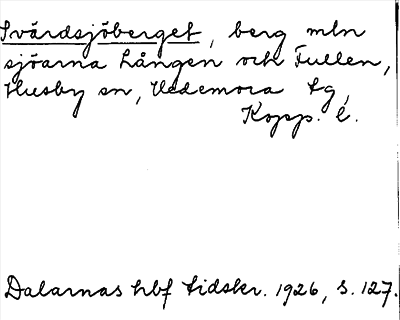 Svärdsjöberget, berg mln
sjöarna Lången och Fullen,
Husby sn, Hedemora tg,
Kopp. l.
Dalarnas hbf tidskr. 1926, s. 127.